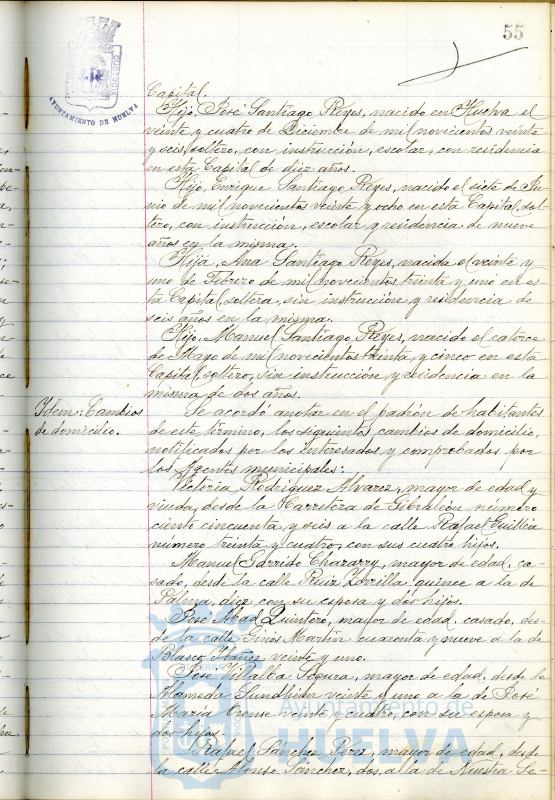 55
AYUNTAMIENTO DE HUELVA
Capital.
Hijo, José Santiago Reyes, nacido en Huelva el
veinte y cuatro de Diciembre de mil novecientos veinte
y seis, soltero, con instrucción, escolar, con residencia
en esta Capital de diez años.
Hijo, Enrique Santiago Reyes, nacido el siete de Ju-
nio de mil novecientos veinte y ocho en esta Capital, sol-
tero, con instrucción, escolar y residencia de nueve
años en la misma.
Hija, Ana Santiago Reyes, nacida el veinte y
uno de Febrero de mil novecientos treinta y uno en es-
ta Capital, soltera, sin instrucción y residencia de
seis años en la misma.
Hijo, Manuel Santiago Reyes, nacido el catorce
de Mayo de mil novecientos treinta y cinco en esta
Capital, soltero, sin instrucción y residencia en la
misma de dos años.
Idem: Cambios
de domicilio.
Se acordó anotar en el padrón de habitantes
de este término, los siguientes cambios de domicilio,
notificados por los interesados y comprobados por
los Agentes municipales:
Victoria Rodriguez Alvarez, mayor de edad y
viuda, desde la Carretera de Gibraleón número
ciento cincuenta y seis a la calle Rafael Guillén
número treinta y cuatro, con sus cuatro hijos.
Manuel Garrido, mayor de edad, ca-
sado, desde la calle Ruiz Zorrilla quince a la de
Palma, diez con su esposa y dos hijos.
José Abad Quintero, mayor de edad, casado, des-
de la calle Ginés Martín cuarenta y nueve a la de
Blasco Ibáñez veinte y uno.
José Villalba Segura, mayor de edad, desde la
Alameda Sundheim veinte y uno a la de José
María Orense veinte y cuatro, con su esposa y
dos hijos.
Rafael Sánchez Pérez, mayor de edad, desde
la calle Alonso Sánchez, dos, a la de Nuestra Se-
Ayuntamiento de
HUELVA